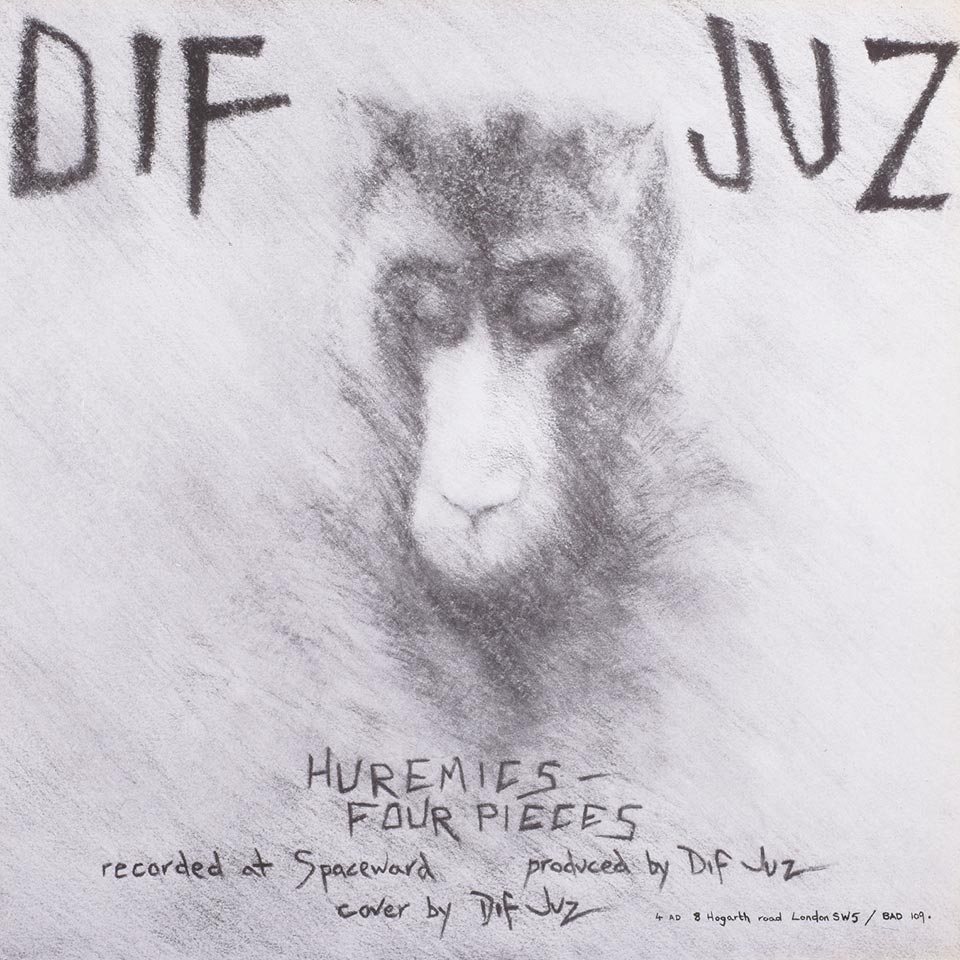 DIF JUZ
HUREMICS –
FOUR PIECES
recorded at Spaceward produced by Dif Juz
cover by Dif Juz
4 AD 8 Hogarth road London SW5 / BAD 109.